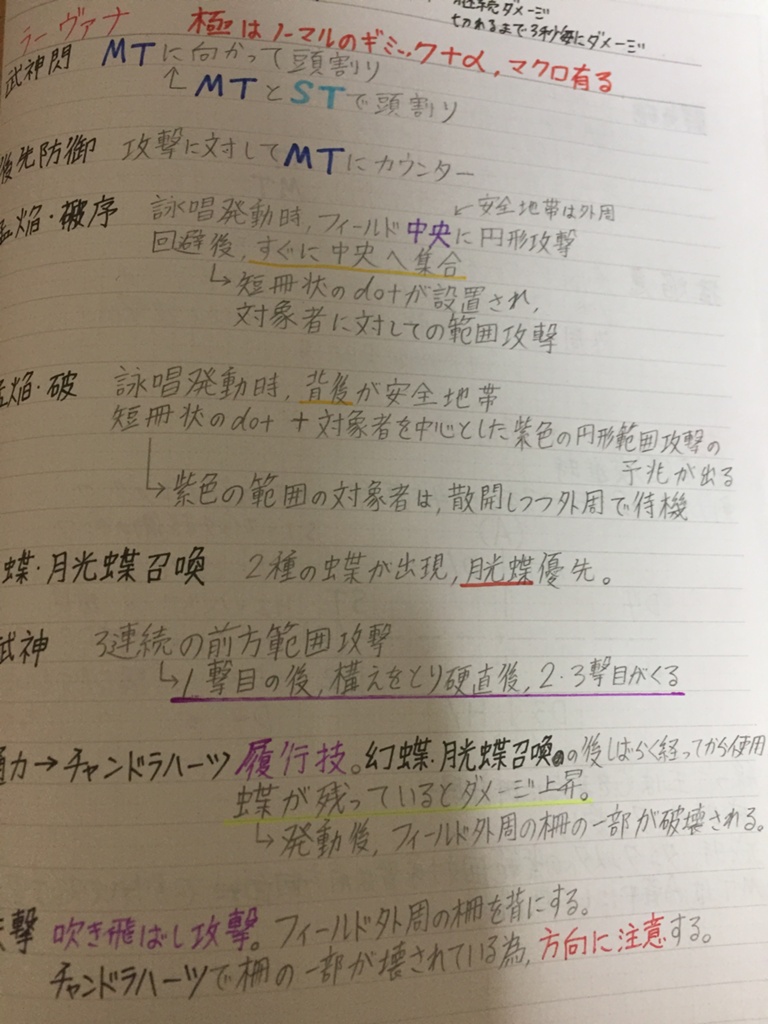 継続ダメージ
切れるまで3秒毎にダメージ
ラーヴァナ 極はノーマルのギミック+α,マクロ有る
武神閃 MTに向かって頭割り
↑MTとSTで頭割り
後先防御 攻撃に対してMTにカウンター
焔・破序 詠唱発動時,フィールド中央に円形攻撃
↙安全地帯は外周
回避後,すぐに中央へ集合
↳短冊状のdotが設置され,
対象者に対しての範囲攻撃
焔・破 詠唱発動時,背後が安全地帯
短冊状のdot+対象者を中心とした紫色の円形範囲攻撃の
予兆が出る
↳紫色の範囲の対象者は,散開しつつ外周で待機
蝶・月光蝶召喚 2種の蝶が出現,月光蝶優先。
武神 3連続の前方範囲攻撃
↳1撃目の後,構えをとり硬直後,2・3撃目がくる
力→チャンドラハーツ 履行技。幻蝶・月光蝶召喚の後しばらく経ってから使用
蝶が残っているとダメージ上昇。
↳発動後,フィールド外周の柵の一部が破壊される。
撃 吹き飛ばし攻撃。フィールド外周の柵を背にする。
チャンドラハーツで柵の一部が壊されている為,方向に注意する。